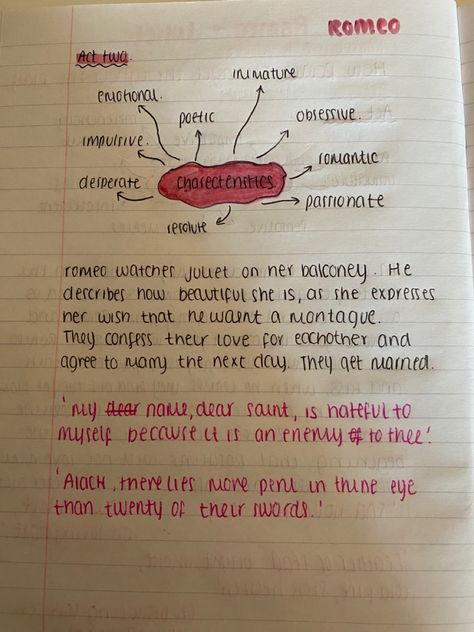 ROMEO
Act two.
immature
emotional.
poetic
obsessive.
impulsive.
romantic
desperate
charecteristics
passionate
resolute
romeo watches juliet on her balconey. He
describes how beautiful she is, as she expresses
her wish that he wasnt a montague.
They confess their love for eachother and
agree to marry the next day. They get married.
'My dear name, dear saint, is hateful to
myself because it is an enemy of to thee'.
'Alack, there lies more peril in thine eye
than twenty of their swords.'